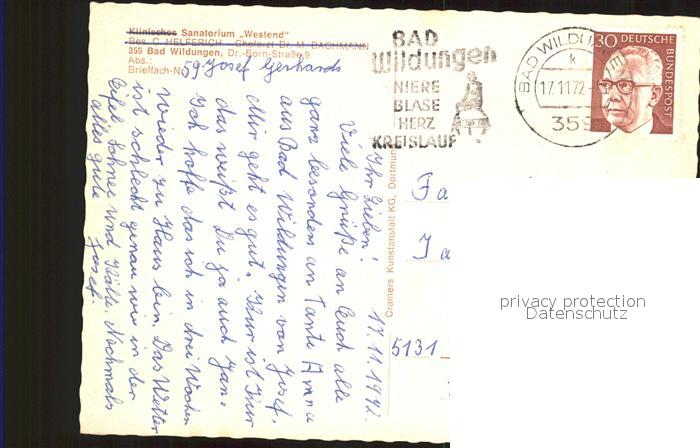 Klinisches Sanatorium „Westend"
Bes. C. HELFERICH - Chefarzt Dr. M. BACHMANN
359 Bad Wildungen, Dr.-Born-Straße 9
Abs.:
Brieffach-Nr. 59 Josef Gerhards
BAD
Wildungen
NIERE
BLASE
HERZ
KREISLAUF
BAD WILDU
k
17.11.72
359
30 DEUTSCHE
BUNDESPOST
17.11.1972
Ihr Lieben!
Viele Grüße an Euch alle
ganz besonders an Tante Anna
aus Bad Wildungen von Josef.
Mir geht es gut. Kur ist Kur
das weißt Du ja auch Jan.
Ich hoffe das ich in drei Wochen
wieder zu Haus bin. Das Wetter
ist schlecht genau wie in der
Eifel Schnee und Kälte. Nochmals
alles gute Josef
Cramers Kunstanstalt KG, Dortmun
Fa
Ja
5131
privacy protection
Datenschutz